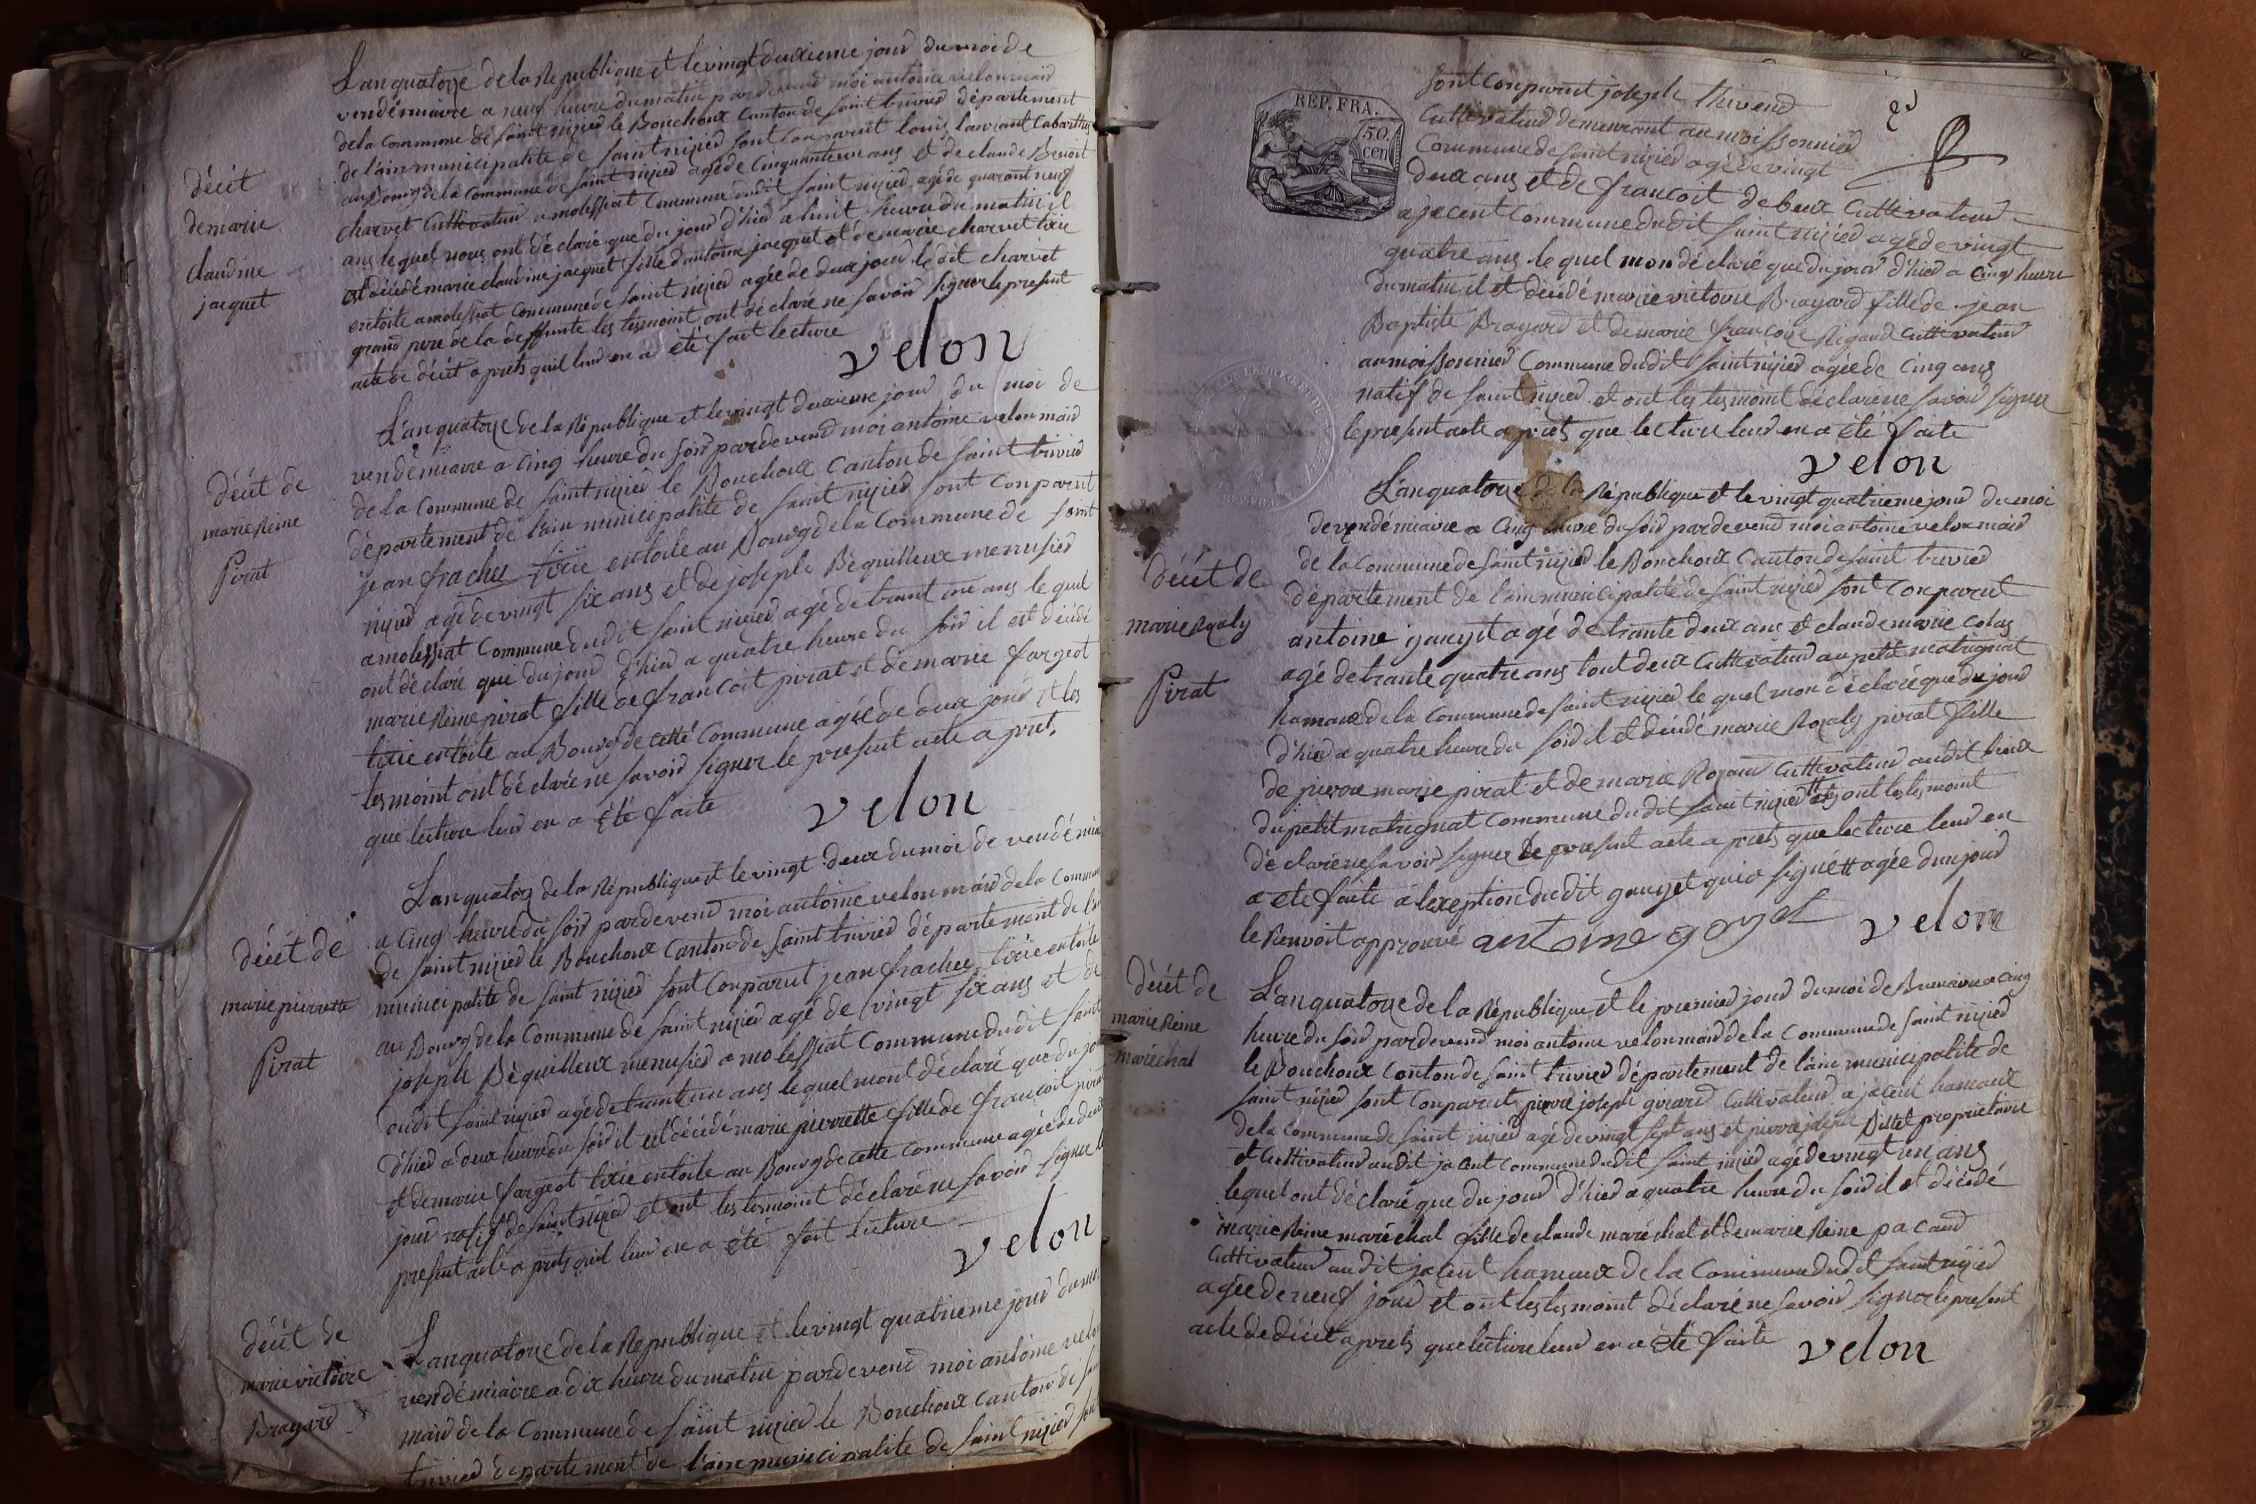 L'an quatorze de la Republique et le vingt deuxieme jour du moi de
vendémiaire a neuf heure du matin pardevend moi antoine velon maid
de la Commune de saint nizied le Bouchoux Canton de saint trivied département
de l'ain municipalité de saint nizied sont conparut louis laurant Cabarttier
au Bourg de la Commune de saint nizied agé de Cinquante ans et de claude Benoit
charvet Cuttevateur a molessiat Commune dudit saint nizied agé de quarant neuf
ans lequel nous ont déclaré que du jour d'hied a huit heure du matin il
est décédé marie claudine jacquet fille d'antoine jacquet et de marie charvet tixie
entoile a molessiat Commune de saint nizied agée de deux jour le dit charvet
grand pere de la deffunte les tesmoint ont déclaré ne savoir signer le present
acte de décét aprets quil leur en a été fait lecture
velon
décét
de marie
claudine
jacquet
L'an quatorze de la République et le vingt deuxieme jour du moi de
vendémiaire a Cinq heure du soir pardevend moi antoine velon maid
de la Commune de saint nizied le Bouchoux Canton de saint trivied
département de l'ain municipalité de saint nizied sont conparut
jean frachet tixie entoile au Bourg de la Commune de saint
nizied agé de vingt six ans et de joseph Béguilleux menusied
a molessiat Commune dudit saint nizied agé de trant une ans le quel
ont déclaré que du jour d'hied a quatre heure du soir il est décédé
marie Reine pirat fille de francoit pirat et de marie fargeot
tixie entoile au Bourg de cette Commune agée de deux jour et les
tesmoint ont déclaré ne savoir signer le present acte a pret
que lecture leur en a été faite
velon
décét de
marie Reine
Pirat
L'an quatorz de la République et le vingt deux du moi de vendémiai
a Cinq heure du soir pardevend moi antoine velon maid de la Commun
de saint nizied le Bouchoux Canton de saint trivied département de l'ai
municipalité de saint nizied sont conparut jean frachet tixie entoile
au Bourg de la Commune de saint nizied agé de vingt six ans et de
joseph Béguilleux menusied a molessiat Commune dudit saint
oudit saint nizied agé de trant une ans lequel mont déclaré que du jo
d'hied a deux heure du soir il est décédé marie pierrette fille de francoit pirat
et de marie fargeot tixie entoile au Bourg de cette Commune agée de deux
jour natif de saint nizied et ont les tesmoint déclaré ne savoir signer le
present acte aprets quil leur en a été fait lecture
velon
décét de
marie pierrette
Pirat
L'an quatorze de la République et le vingt quatrieme jour du moi
vendémiaire a dix heure du matin pardevend moi antoine velon
maid de la Commune de saint nizied le Bouchoux Canton de sain
trivied département de l'ain municipalité de saint nizied son
décét de
marie victoire
Brayard
REP. FRA.
50
cen
sont conparut joseph
Cuttevateur demeurant au moissonnier
Commune de saint nizied agé de vingt
deux ans et de francoit debeux Cuttevateur
a jacent Commune dudit saint nizied agé de vingt
quatre ans le quel mon déclaré que du jour d'hied a Cinq heure
du matin il et décédé marie victoire Brayard fille de jean
Baptiste Brayard et de marie francoise Rigaud Cuttevateur
au moissonnier Commune dudit saint nizied agée de Cinq ans
natif de saint nizied et ont les tesmoint déclaré ne savoir signer
le present acte aprets que lecture leur en a été faite
velon
L'an quatorze de la République et le vingt quatrieme jour du moi
de vendémiaire a Cinq heure du soir pardevend moi antoine velon maid
de la Commune de saint nizied le Bouchoux Canton de saint trivied
département de l'ain municipalité de saint nizied sont Conparut
antoine gauyit agé de trante deux ans et claude marie Colas
agé de trante quatre ans tout deux Cuttevateur au petit matrignat
hamaux de la Commune de saint nizied le quel mon déclaré que du jour
d'hied a quatre heure du soir il et décédé marie Rozaly pirat fille
de pierre marie pirat et de marie Cuttevateur audit lieux
du petit matrignat Commune dudit saint nizied et ont les tesmoint
déclaré ne savoir signer le present acte a prets que lecture leur en
a été faite a l'exeption dudit gauyet qui a signé # agée dun jour
le Renvoit approuvé antoine goyet velon
décét de
marie Rozaly
Pirat
L'an quatorze de la République et le premier jour du moi de Brumaire a Cinq
heure du soir pardevend moi antoine velon maid de la Commune de saint nizied
le Bouchoux Canton de saint trivied département de l'ain municipalité de
saint nizied sont Conparut pierre joseph girard Cuttivateur a jacent hamaux
de la Commune de saint nizied agé de vingt sept ans et pierre joseph Billet proprietaire
et Cuttivateur audit jacent Commune dudit saint nizied agé de vingt un ans
lequel ont déclaré que du jour d'hied a quatre heure du soir il et décédé
marie Reine maréchal fille de claude maréchal et de marie Reine pacaud
Cuttivateur audit jacent hamaux de la Commune dudit saint nizied
agée de neuf jour et ont les tesmoint déclaré ne savoir signer le present
acte de décét aprets que lecture leur en a été faite velon
décét de
marie Reine
maréchal